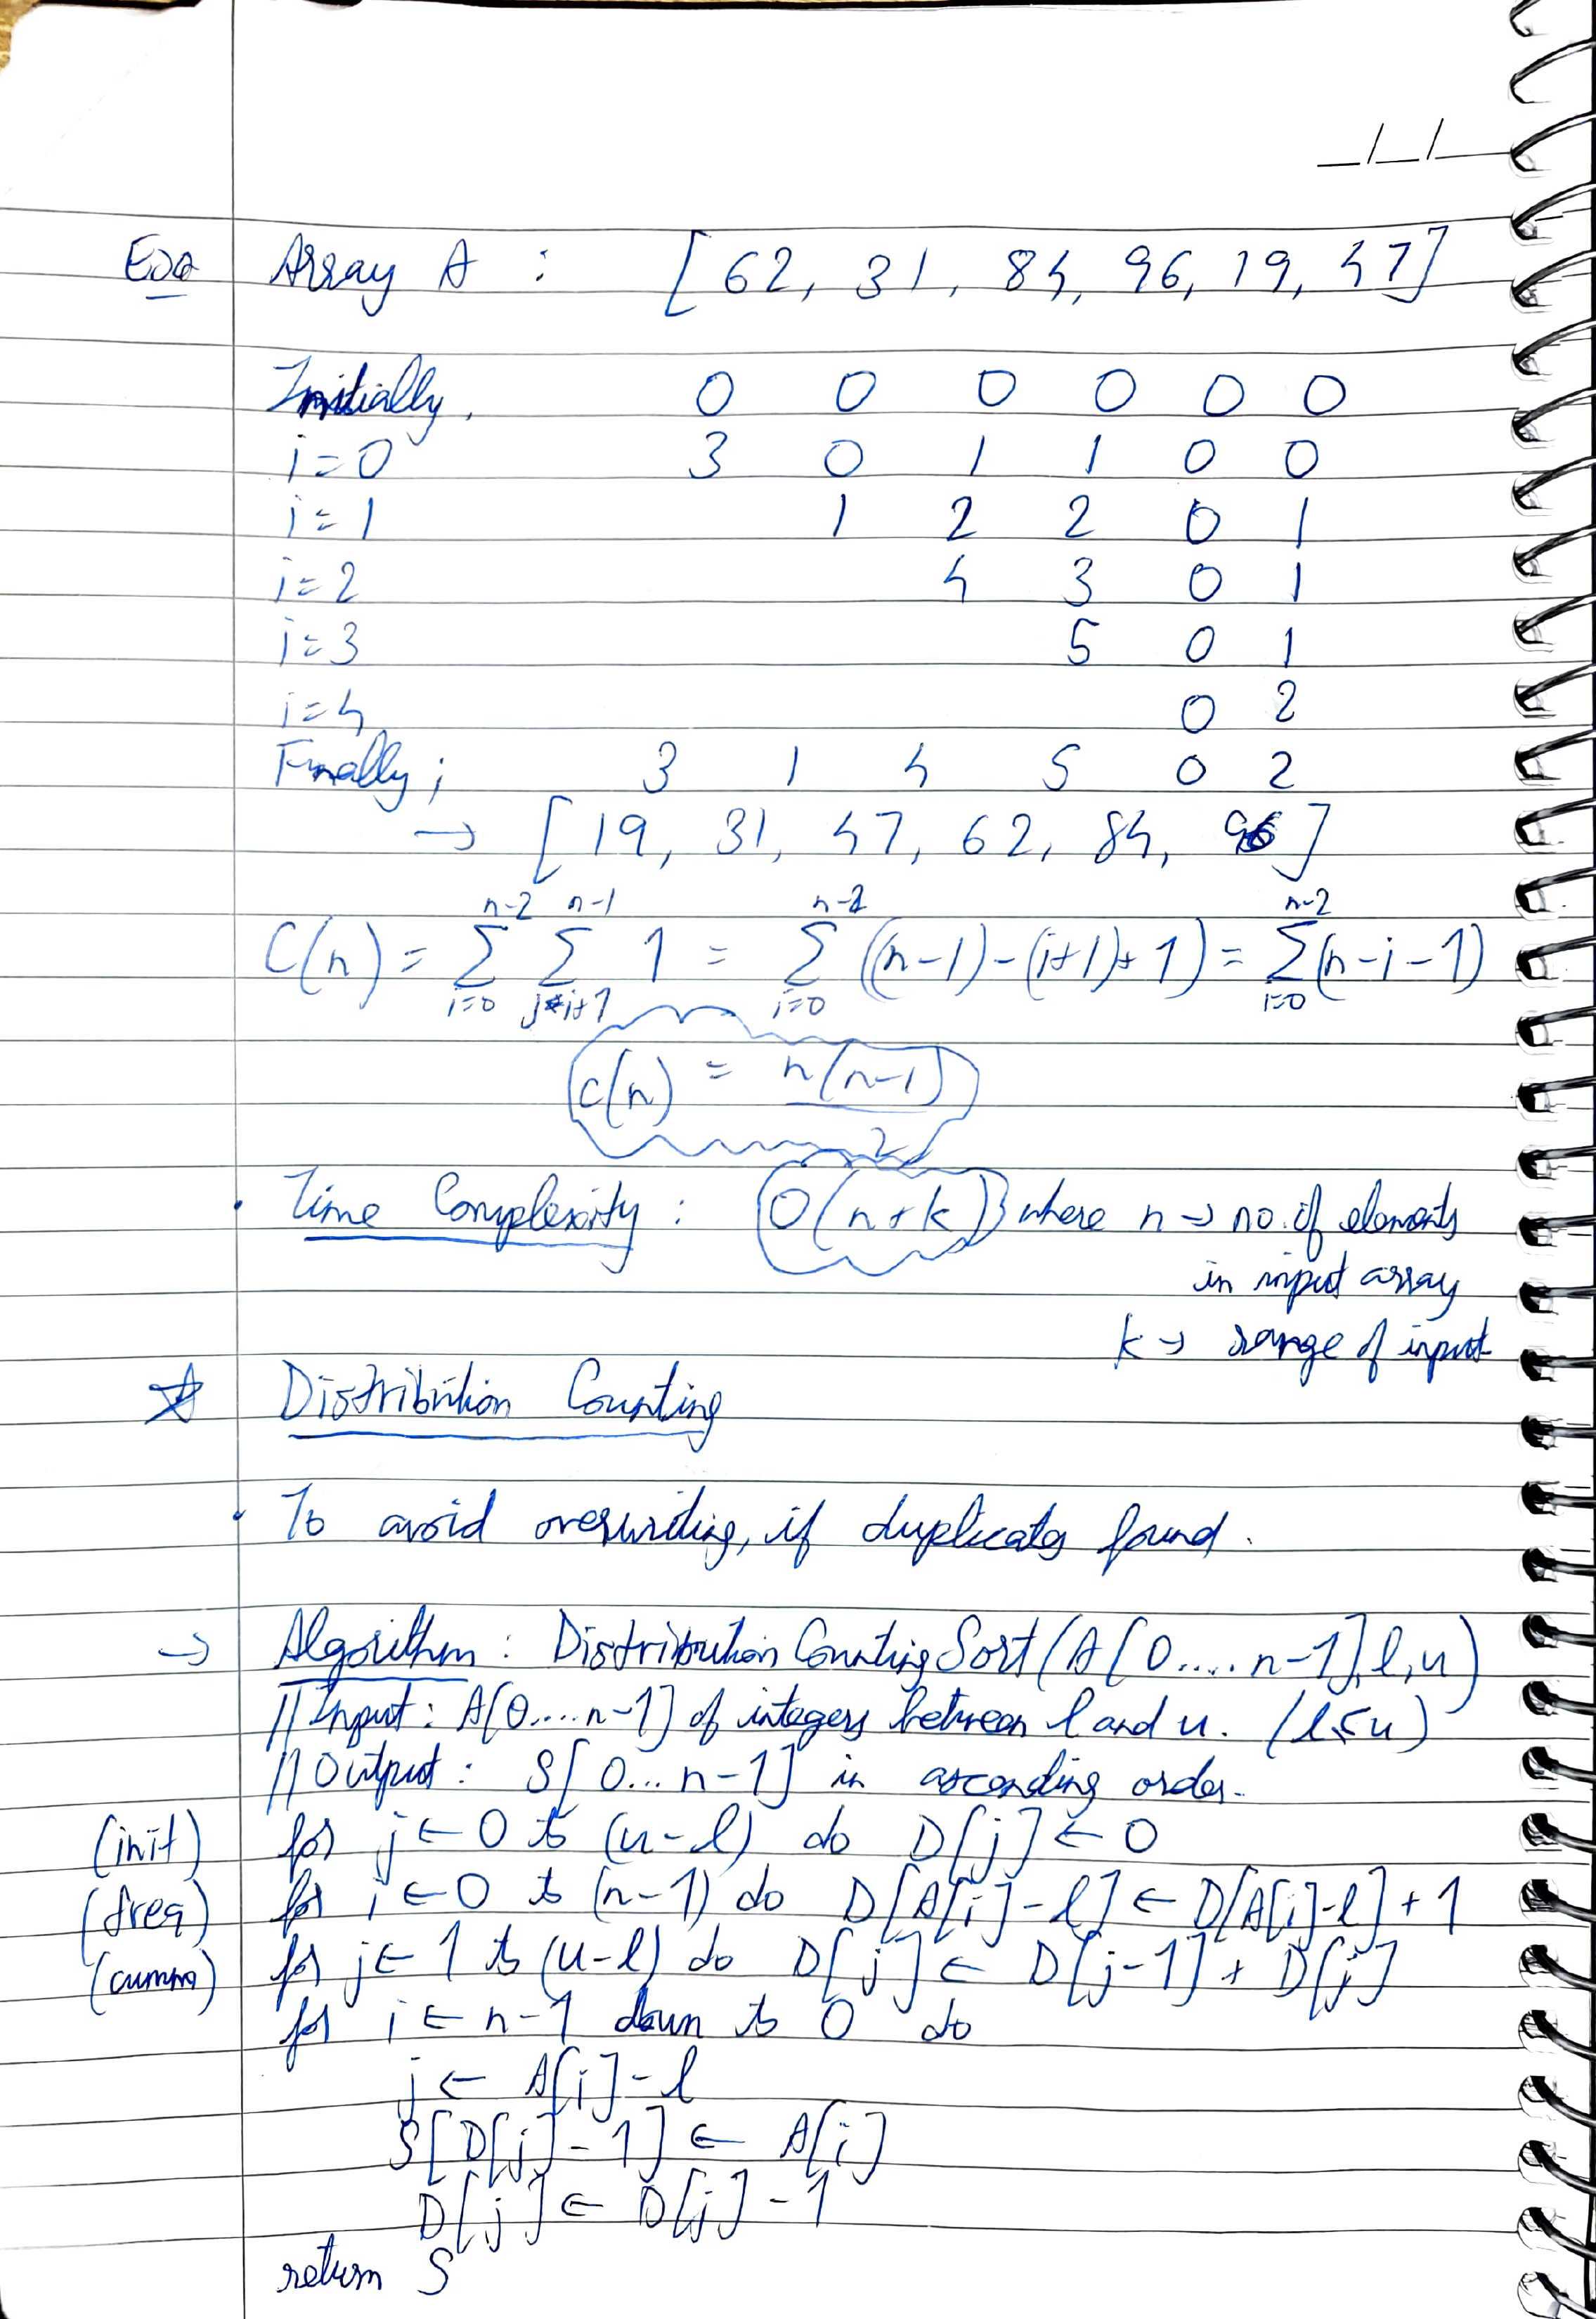 _/_/_
Ex Array A : [62, 31, 84, 96, 19, 47]
Initially, 0 0 0 0 0 0
i=0 3 0 1 1 0 0
i=1 1 2 2 0 1
i=2 4 3 0 1
i=3 5 0 1
i=4 0 2
Finally; 3 1 4 5 0 2
→ [19, 31, 47, 62, 84, 96]
C(n) = Σ_{i=0}^{n-2} Σ_{j=i+1}^{n-1} 1 = Σ_{i=0}^{n-2} ((n-1)-(i+1)+1) = Σ_{i=0}^{n-2} (n-i-1)
C(n) = n(n-1)/2
• Time Complexity : O(n+k) where n → no. of elements
in input array
k → range of input
☆ Distribution Counting
• To avoid overwriting, if duplicates found.
→ Algorithm : Distribution Counting Sort (A[0.....n-1], l, u)
// Input : A[0....n-1] of integers between l and u. (l≤u)
// Output : S[0...n-1] in ascending order.
(init) for j ← 0 to (u-l) do D[j] ← 0
(freq) for i ← 0 to (n-1) do D[A[i]-l] ← D[A[i]-l] + 1
(cumm) for j ← 1 to (u-l) do D[j] ← D[j-1] + D[j]
for i ← n-1 down to 0 do
j ← A[i]-l
S[D[j]-1] ← A[i]
D[j] ← D[j]-1
return S